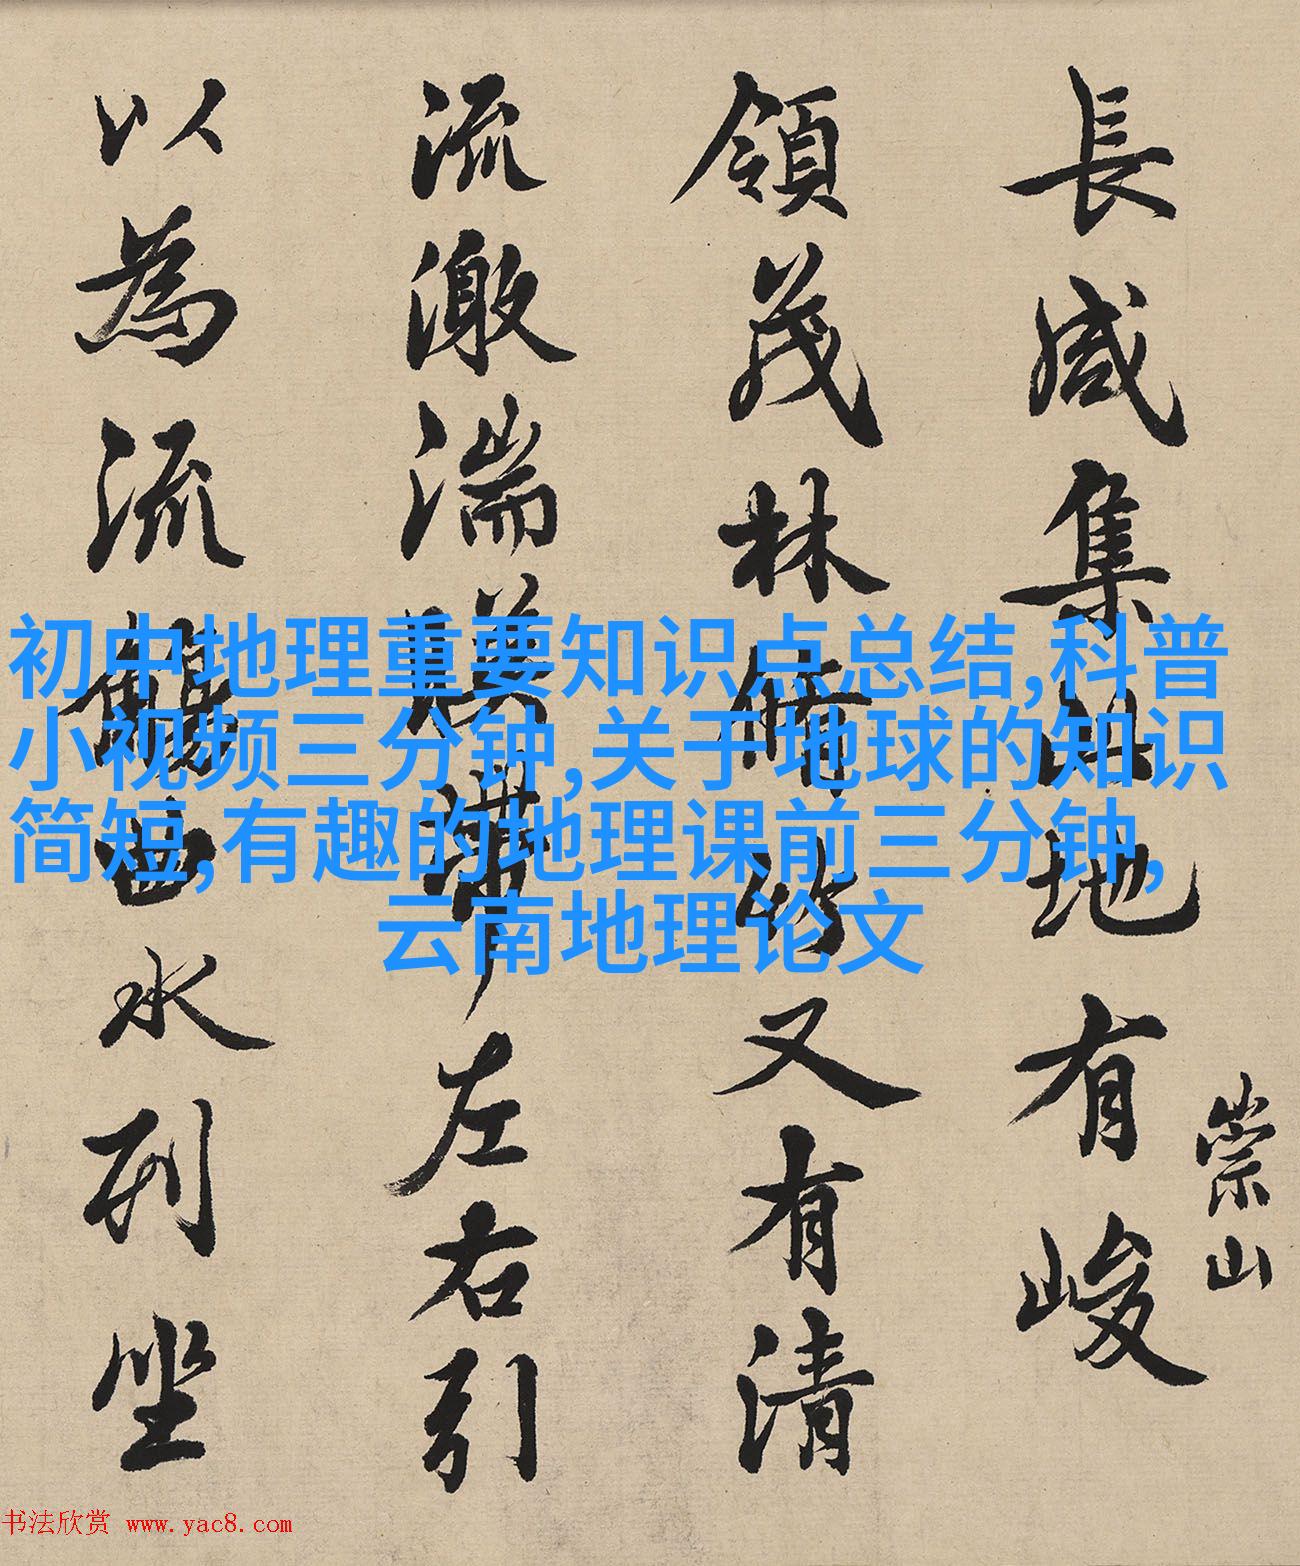 長咸集此地有峻
崇山
領茂林脩竹又有清
流激湍暎帶左右引
以為流觴曲水列坐
初中地理重要知识点总结,科普
小视频三分钟,关于地球的知识
简短,有趣的地理课前三分钟,
云南地理论文
书法欣赏 www.yac8.com